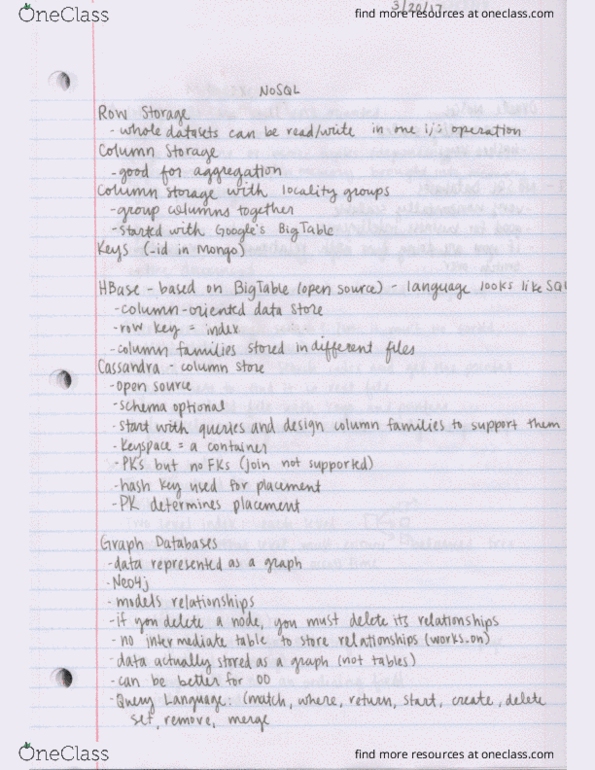 OneClass
find more resources at oneclass.com
3/20/17
NoSQL
Row Storage
- whole datasets can be read/write in one i/o operation
Column Storage
- good for aggregation
Column storage with locality groups
- group columns together
- started with Google's BigTable
Keys (_id in Mongo)
HBase - based on BigTable (open source) - language looks like SQL
- column-oriented data store
- row key = index
- column families stored in different files
Cassandra - column store
- open source
- schema optional
- start with queries and design column families to support them
- Keyspace = a container
- PKs but no FKs (join not supported)
- hash key used for placement
- PK determines placement
Graph Databases
- data represented as a graph
- Neo4j
- models relationships
- if you delete a node, you must delete its relationships
- no intermediate table to store relationships (works_on)
- data actually stored as a graph (not tables)
- can be better for OO
- Query Language: (match, where, return, start, create, delete
set, remove, merge
OneClass
find more resources at oneclass.com